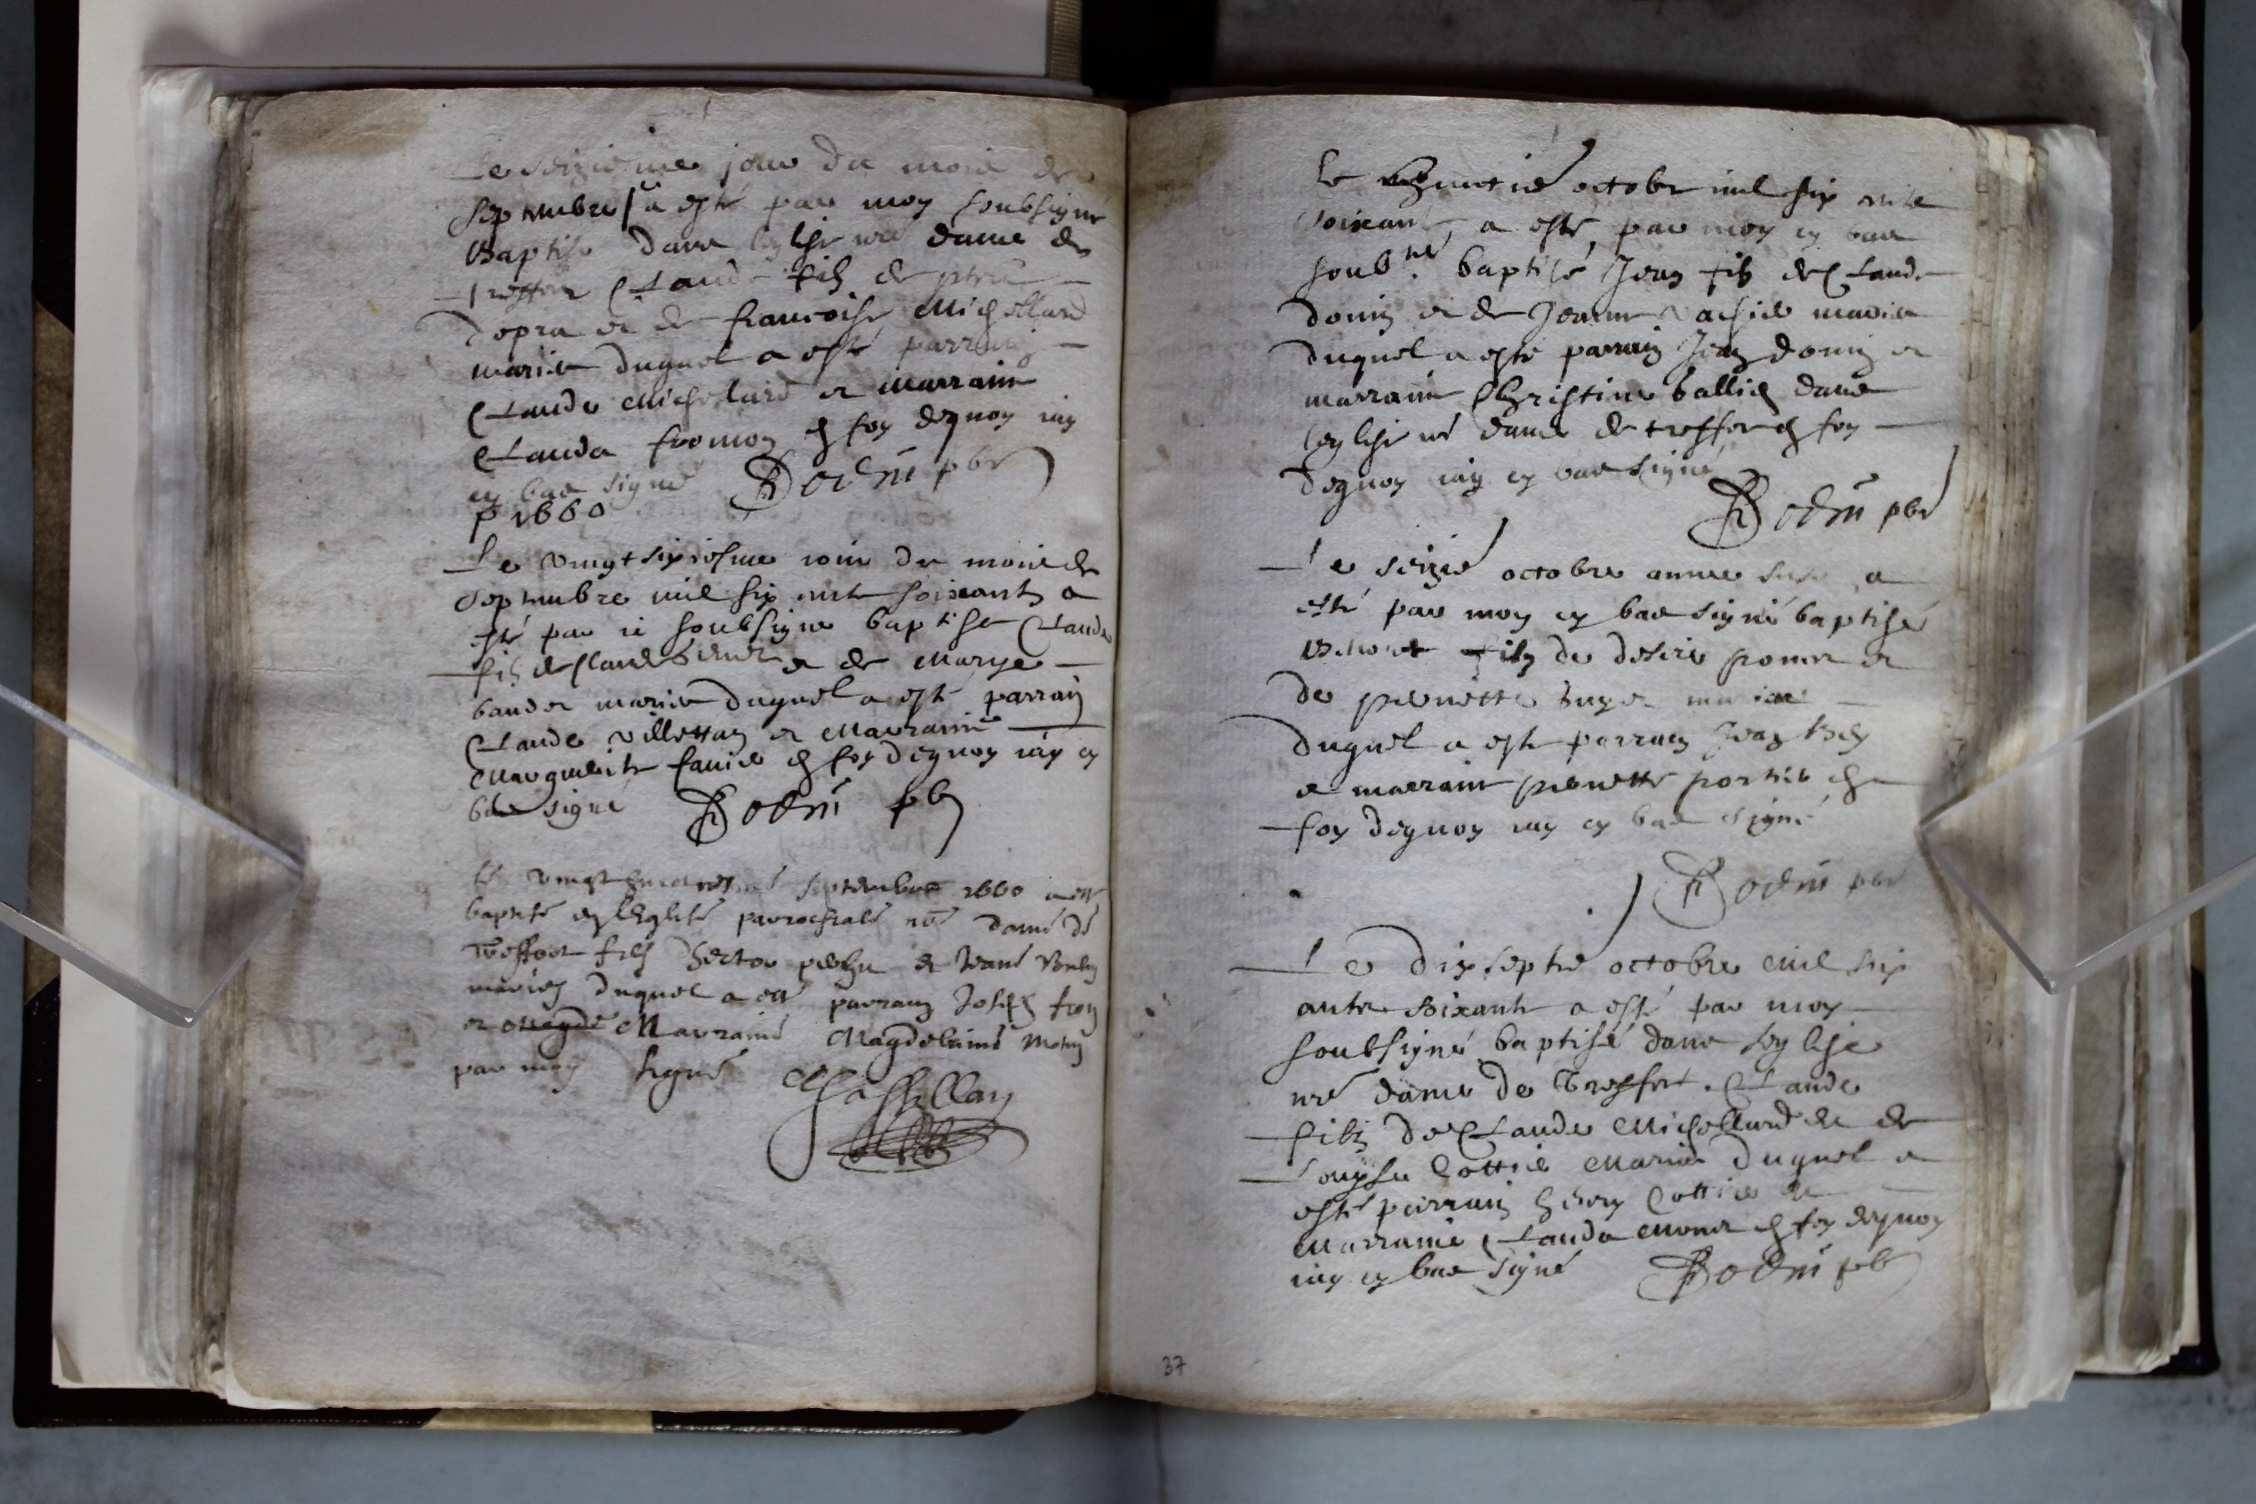 Le seizieme jour du mois de
septembre a esté par moy soubsigné
Baptisé dans leglise nre dame de
treffor Claude filz de
Dopra et de francoise Michellard
mariés duquel a esté parrain
Claude Michelard et Marraine
Clauda fromon en foy dequoy iay
cy bas signé Bodin pbr
p 1660
Le vingt sixiesme iour du mois de
septembre mil six cent soixante a
esté par ie soubsigne baptise Claude
filz de Claude et de Marye
baudet mariés duquel a esté parrain
Claude villettan et Marraine
Marguerite favier en foy dequoy iay cy
bas signé Bodin pb
le vingt septembre 1660 a esté
baptisé en leglise parrochiale nre dame de
Treffort filz hector et Jeane
mariés duquel a esté parrain Joseph
et Magde Marraine Magdelaine
par moy signé Chastillon
le huictie octobr mil six cent
soixante, a esté par moy cy bas
soubné baptisé Jean filz de Claude
donin et de Jeanne vachier mariés
duquel a esté parrain Jean donin et
marraine Christine ballich dans
leglise nre dame de treffor en foy
dequoy iay cy bas signé
Bodin pbr
Le seizie octobre annee susd a
esté par moy cy bas signé baptisé
Benoict filz de desire ponier et
de pernette mariés
duquel a esté parrain Jean
et marraine pernette portier en
foy dequoy iay cy bas signé
Bodin pbr
Le dixseptie octobre mil six
cents soixante a esté par moy
soubsigné baptisé dans leglise
nre dame de Treffort Claude
filz de Claude Michellard et de
Louyse Cottier Mariés duquel a
esté parrain henry Cottier et
Marraine Clauda Monier en foy dequoy
iay cy bas signé Bodin pbr
37